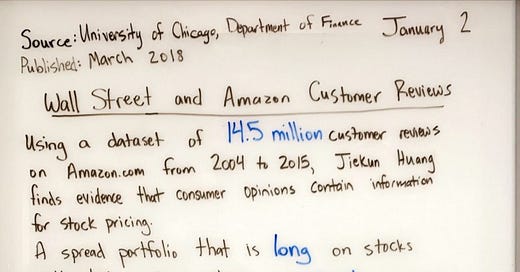 Source: University of Chicago, Department of Finance January 2
Published: March 2018
Wall Street and Amazon Customer Reviews
Using a dataset of 14.5 million customer reviews
on Amazon.com from 2004 to 2015, Jiekun Huang
finds evidence that consumer opinions contain information
for stock pricing.
A spread portfolio that is long on stocks